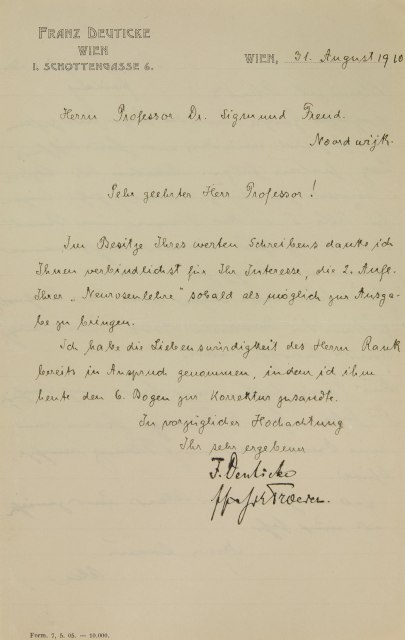 FRANZ DEUTICKE
WIEN
I. SCHOTTENGASSE 6.
WIEN, 31. August 1910
Herrn Professor Dr. Sigmund Freud.
Noordwijk.
Sehr geehrter Herr Professor!
Im Besitze Ihres werten Schreibens danke ich
Ihnen verbindlichst für Ihr Interesse, die 2. Aufl.
Ihrer „Neurosenlehre" sobald als möglich zur Ausga-
be zu bringen.
Ich habe die Liebenswürdigkeit des Herrn Rank
bereits in Anspruch genommen, indem ich ihm
heute den 6. Bogen zur Korrektur zusandte.
In vorzüglicher Hochachtung
Ihr sehr ergebener
F. Deuticke
Form. 7, 5. 05. — 10.000.